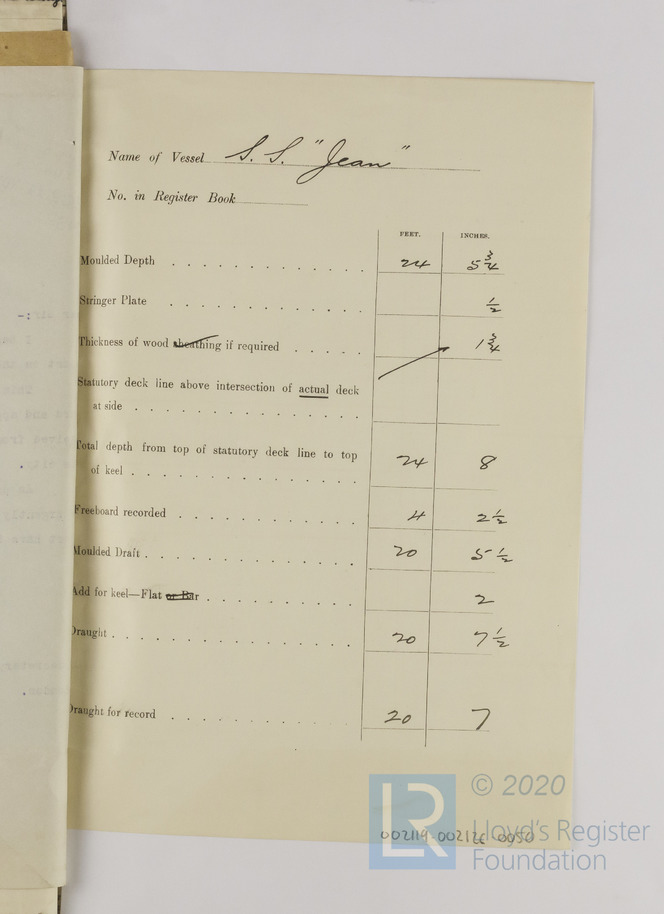 Name of Vessel S. S. "Jean"
No. in Register Book
FEET. INCHES.
Moulded Depth 24 5 3/4
Stringer Plate 1/2
Thickness of wood sheathing if required 1 3/4
Statutory deck line above intersection of actual deck
at side
Total depth from top of statutory deck line to top
of keel 24 8
Freeboard recorded 4 2 1/2
Moulded Draft 20 5 1/2
Add for keel—Flat or Bar 2
Draught 20 7 1/2
Draught for record 20 7
LR
© 2020
Lloyd's Register
Foundation
002119-002126-0050